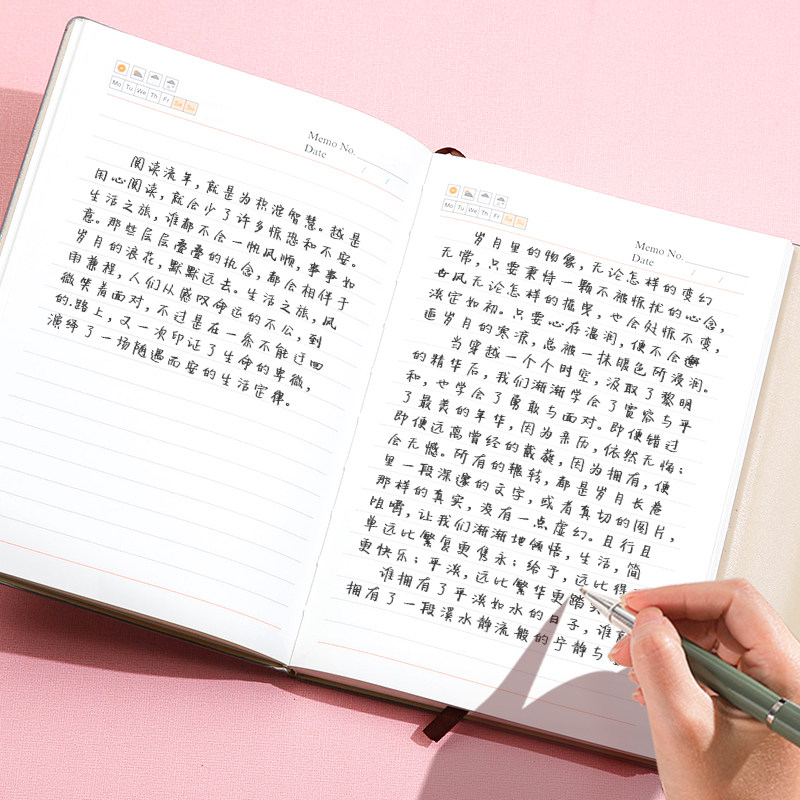 Mo Tu We Th Fr Sa Su
Memo No.
Date / /
阅读流年，就是为积淀智慧。越是
用心阅读，就会少了许多惊恐和不安。
生活之旅，谁都不会一帆风顺，事事如
意。那些层层叠叠的执念，都会相伴于
岁月的浪花，默默远去。生活之旅，风
雨兼程，人们从感叹命运的不公，到
微笑着面对，不过是在一条不能迂回
的路上，又一次印证了生命的卑微，
演绎了一场随遇而安的生活定律。
Mo Tu We Th Fr Sa Su
Memo No.
Date / /
岁月里的物象，无论怎样的变幻
无常，只要秉待一颗不被惊扰的心念，
世风无论怎样的摇曳，也会处惊不变，
淡定如初。只要心存温润，便不会邂
逅岁月的寒凉，总被一抹暖色所浸润。
当穿越一个个时空，汲取了黎明
的精华后，我们渐渐学会了宽容与平
和，也学会了勇敢与面对。即便错过
了最美的年华，因为亲历，依然无悔；
即便远离曾经的蔷薇，因为拥有，便
会无憾。所有的辗转，都是岁月长卷
里一段深邃的文字，或者真切的图片，
那样的真实，没有一点虚幻。且行且
咀嚼，让我们渐渐地领悟，生活，简
单远比繁复更隽永；给予，远比得
更快乐；平淡，远比繁华更踏实
谁拥有了平淡如水的日子，谁
拥有了一段溪水静流般的宁静与